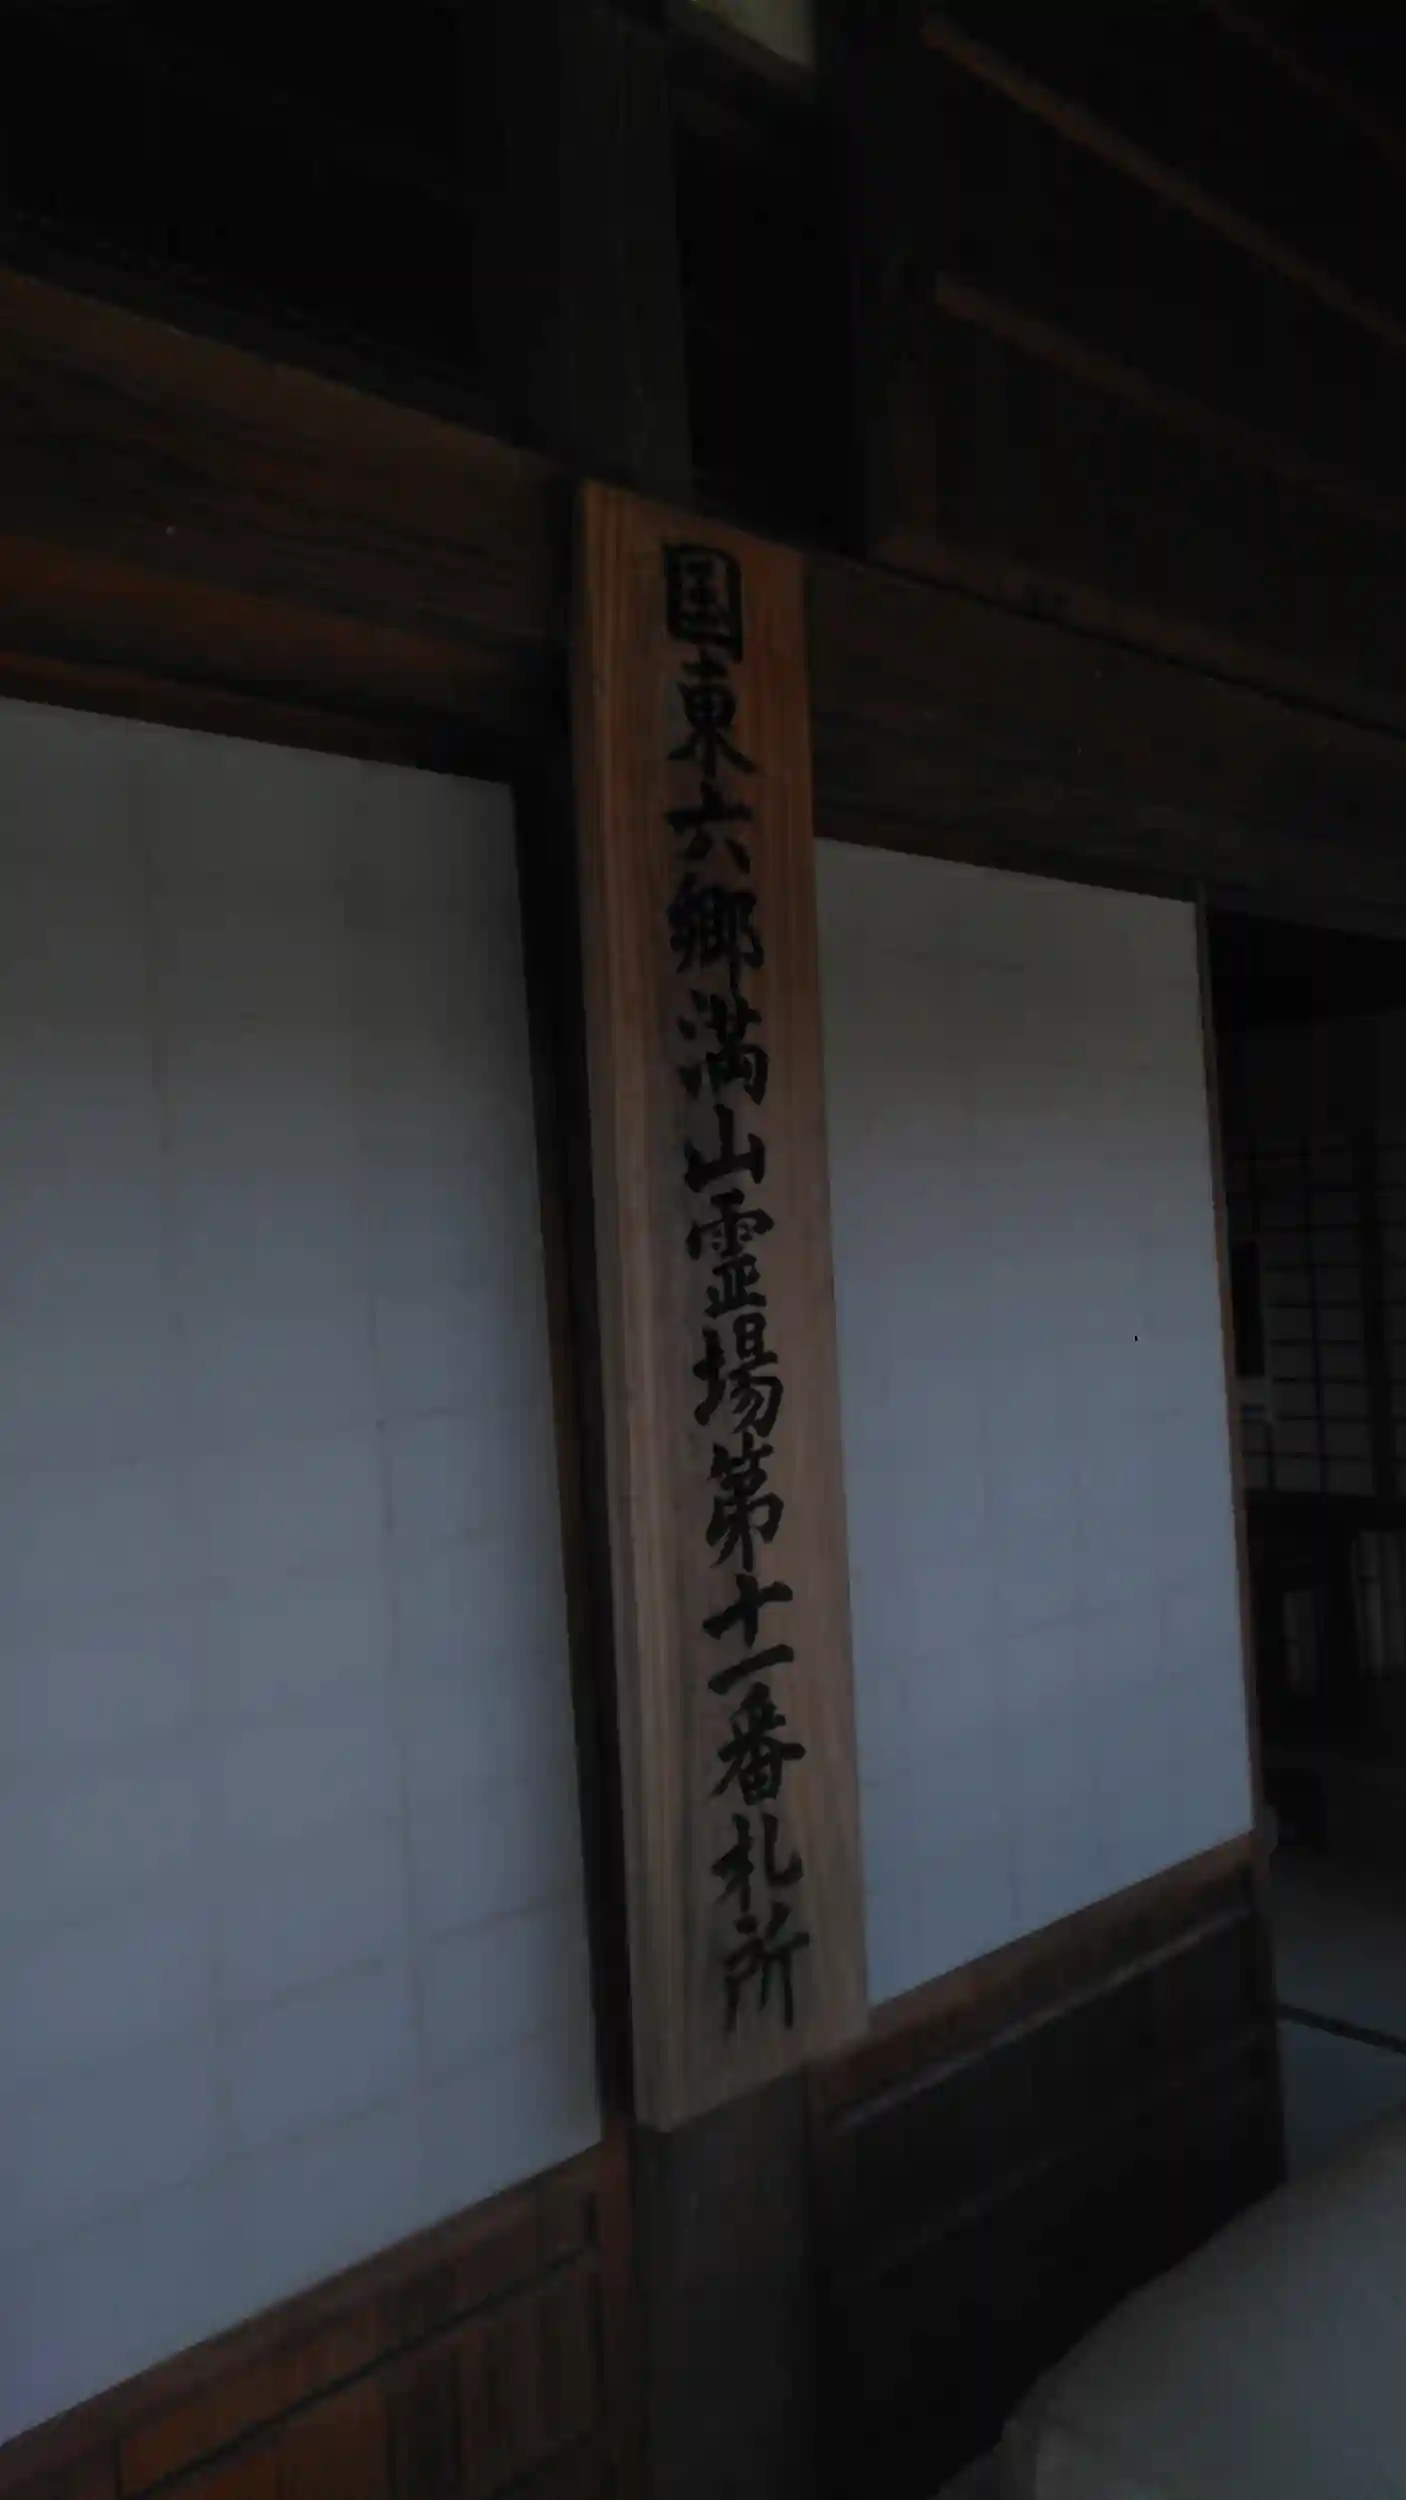 国東六郷満山霊場第十一番札所